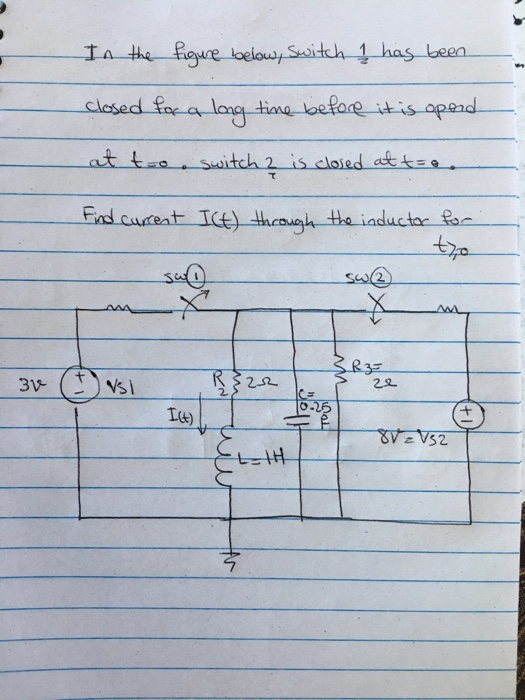 In the figure below, switch 1 has been
closed for a long time before it is opend
at t=0. switch 2 is closed at t=0.
Find current I(t) through the inductor for
t≥0
SW① SW②
R3=
2Ω
3V + - VS1 R2 2Ω
C=
0.25
F
I(t)
+ -
8V = VS2
L=1H